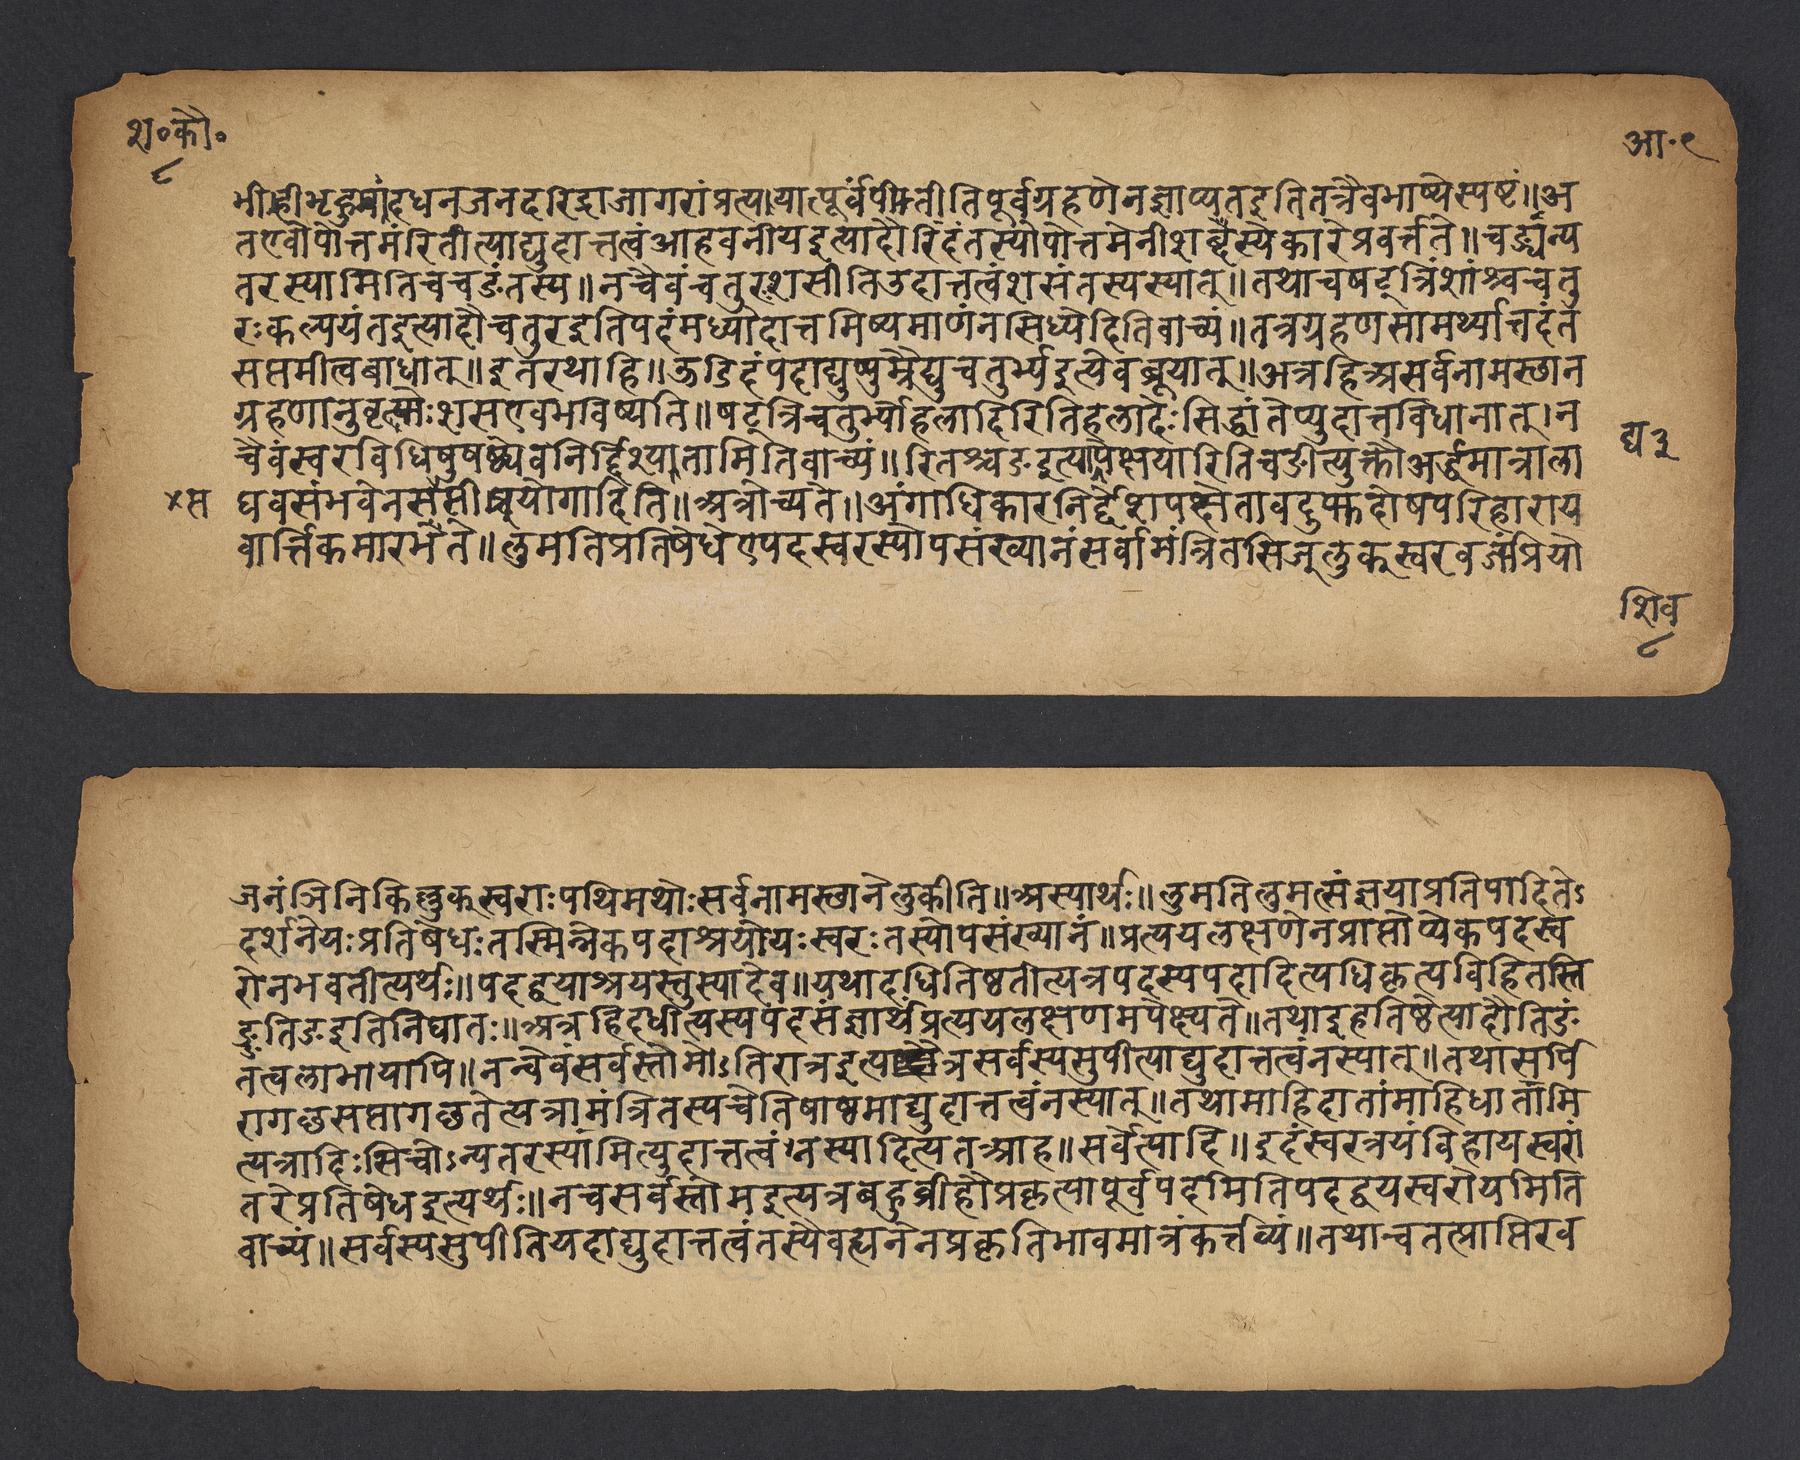 श॰कौ॰
८
आ॰९
भीह्रीभृहुमदधनजनदरिद्राजागरांप्रत्ययात्पूर्वंपितीतिपूर्वग्रहणेनज्ञाप्यतइतितत्रैवभाष्येस्पष्टं॥अ
तएवोपोत्तमंरितीत्याद्युदात्तत्वंआहवनीयइत्यादौरिदंतस्योपोत्तमेनीशब्दस्येकारेप्रवर्त्तते॥चङ्यन्य
तरस्यामितिचचङंतस्य॥नचैवंचतुरःशसीतिउदात्तत्वंशसंतस्यस्यात्॥तथाचषट्त्रिंशांश्चचतु
रःकल्पयंतइत्यादौचतुरइतिपदंमध्योदात्तमिष्यमाणंनसिध्येदितिवाच्यं॥तत्रग्रहणसामर्थ्यात्तदंत
सप्तमीत्वबाधात्॥इतरथाहि॥ऊडिदंपदाद्यप्पुम्रैद्युचतुर्भ्यइत्येवब्रूयात्॥अत्रहिअसर्वनामस्छान
ग्रहणानुवृत्तेःशसएवभविष्यति॥षट्त्रिचतुर्भ्योहलादिरितिहलादेःसिद्धांतेप्युदात्तविधानात्।न
द्य३
चैवंस्वरविधिषुषष्ठ्येवनिर्द्दिश्यतामितिवाच्यं॥रितश्चङइत्यपेक्षयारितिचङीत्युक्तौअर्द्धमात्राला
×प्त
घवसंभवेनसप्तमीप्रयोगादिति॥अत्रोच्यते॥अंगाधिकारनिर्द्देशपक्षेतावदुक्तदोषपरिहाराय
वार्त्तिकमारभ्यते॥लुमतिप्रतिषेधेएपदस्वरस्योपसंख्यानंसर्वामंत्रितसिज्लुक्स्वरवर्जंप्रियो
शिव
८
जनंञिनिकिल्लुक्स्वराःपथिमथोःसर्वनामस्छानेलुकीति॥अस्यार्थः॥लुमतिलुमत्संज्ञयाप्रतिपादितेऽ
दर्शनेयःप्रतिषेधःतस्मिन्नेकपदाश्रयोयःस्वरःतस्योपसंख्यानं॥प्रत्ययलक्षणेनप्राप्तोप्येकपदस्व
रोनभवतीत्यर्थः॥पदद्वयाश्रयस्तुस्यादेव॥यथादधितिष्ठतीत्यत्रपदस्यपदादित्यधिकृत्यविहितस्ति
ङ्ङतिङइतिनिघातः॥अत्रहिदधीत्यस्यपदसंज्ञार्थंप्रत्ययलक्षणमपेक्ष्यते॥तथाइहतिष्ठेत्यादौतिङं
तत्वलाभायापि॥नन्वेवंसर्वस्तोमोऽतिरात्रइत्यत्रसर्वस्यसुपीत्याद्युदात्तत्वंनस्यात्॥तथासर्पि
रागछसप्तागछतेत्यत्रामंत्रितस्यचेतिषाष्ठमाद्युदात्तत्वंनस्यात्॥तथामाहिदातांमाहिधातामि
त्यत्रादिःसिचोऽन्यतरस्यामित्युदात्तत्वंनस्यादित्यतआह॥सर्वेत्यादि॥इदंस्वरत्रयंविहायस्वरां
तरेप्रतिषेधइत्यर्थः॥नचसर्वस्तोमइत्यत्रबहुव्रीहौप्रकृत्यापूर्वपदमितिपदद्वयस्वरोयमिति
वाच्यं॥सर्वस्यसुपीतियदाद्युदात्तत्वंतस्यैवह्यनेनप्रकृतिभावमात्रंकर्त्तव्यं॥तथाचतत्प्राप्तिरेव